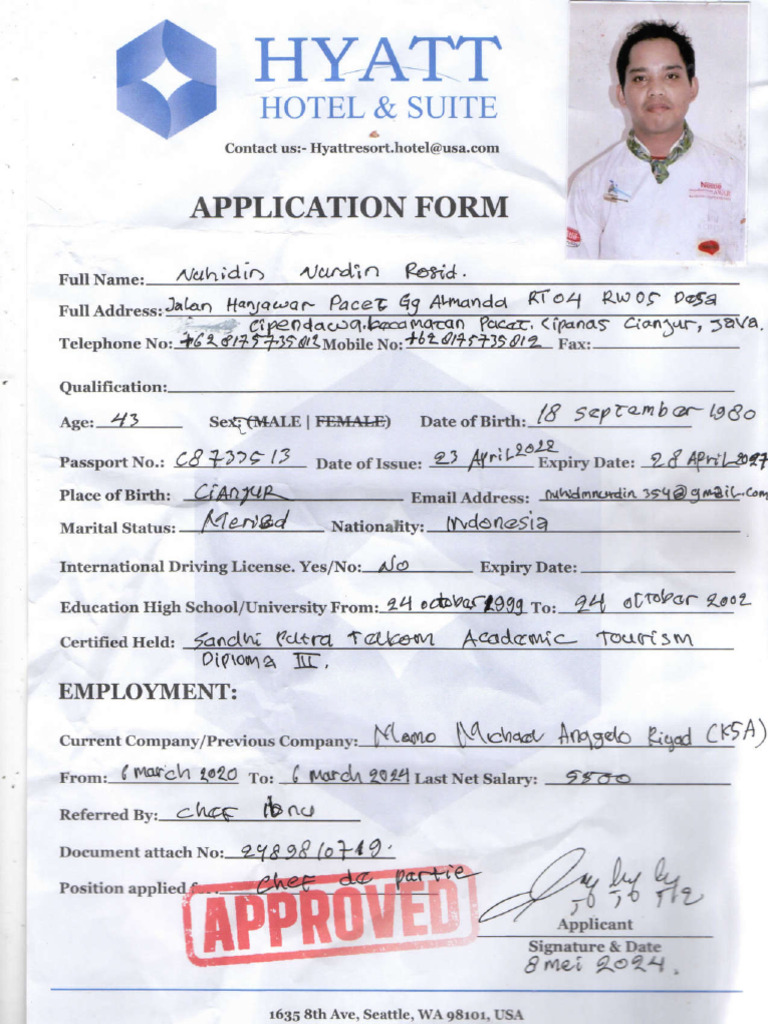 HYATT
HOTEL & SUITE
Contact us:- Hyattresort.hotel@usa.com
APPLICATION FORM
Full Name: Nuhidin Nurdin Rosid.
Full Address: Jalan Hanjawar Pacet Gg Almanda RT04 RW05 Desa
Cipendawa. kecamatan Pacet. Cipanas Cianjur, Java.
Telephone No: +628175735812 Mobile No: +628175735812 Fax:
Qualification:
Age: 43 Sex: (MALE | FEMALE) Date of Birth: 18 September 1980
Passport No.: C8733513 Date of Issue: 23 April 2022 Expiry Date: 28 April 2027
Place of Birth: CIANJUR Email Address: nuhidinnurdin354@gmail.com
Marital Status: Meried Nationality: Indonesia
International Driving License. Yes/No: No Expiry Date:
Education High School/University From: 24 october 1999 To: 24 october 2002
Certified Held: Sandhi Putra Telkom Academic Tourism
Diploma III.
EMPLOYMENT:
Current Company/Previous Company: Mamo Michael Anggelo Riyad (KSA)
From: 6 March 2020 To: 6 march 2024 Last Net Salary: 5500
Referred By: Chef Ibnu
Document attach No: 2489810719.
Position applied Chef de partie
APPROVED
Applicant
Signature & Date
8 mei 2024.
1635 8th Ave, Seattle, WA 98101, USA
Nestle